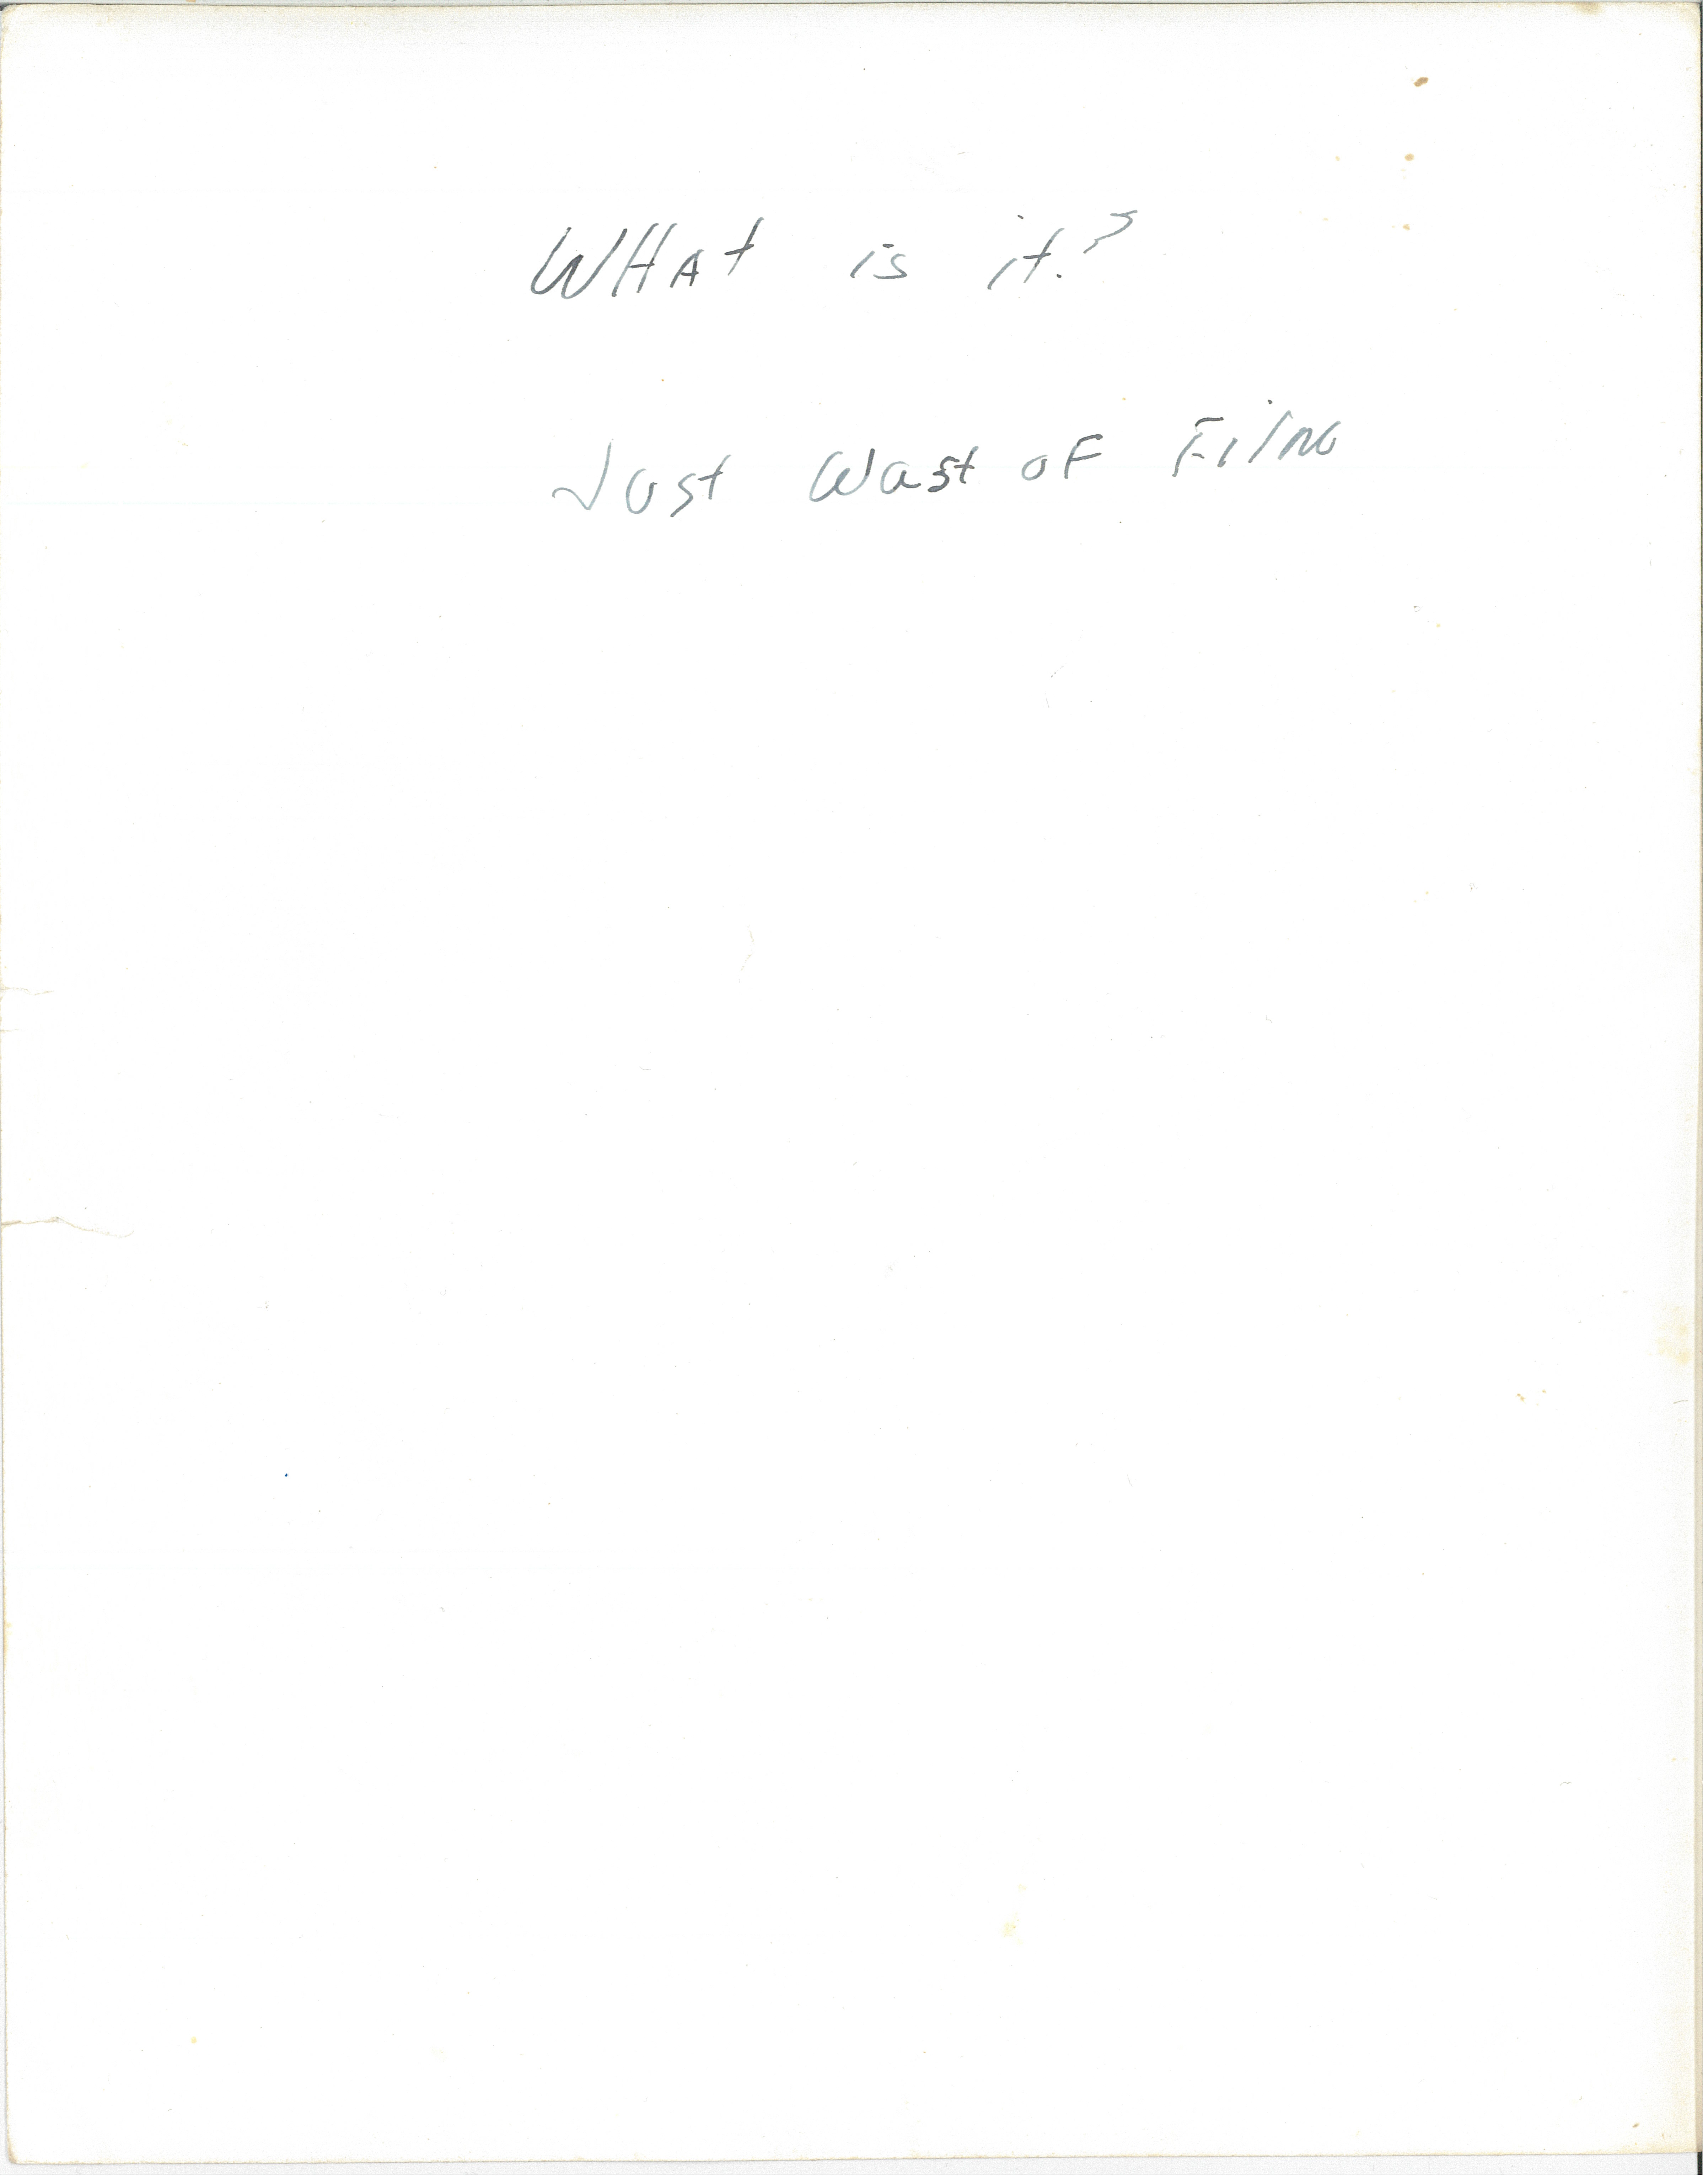 WHAt is it?
Just Wast of Film